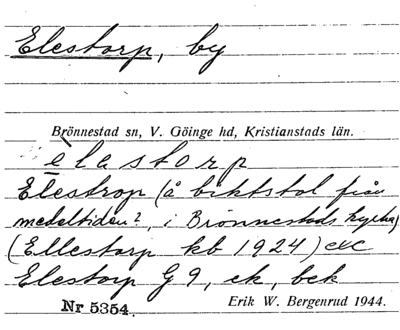 Elestorp, by
Brönnestad sn, V. Göinge hd, Kristianstads län.
elastorp
Elestrop (å biktstol från
medeltiden?, i Brönnestads kyrka)
(Ellestorp kb 1924) exc
Elestorp G 9, ek, bek
Nr 5354. Erik W. Bergenrud 1944.